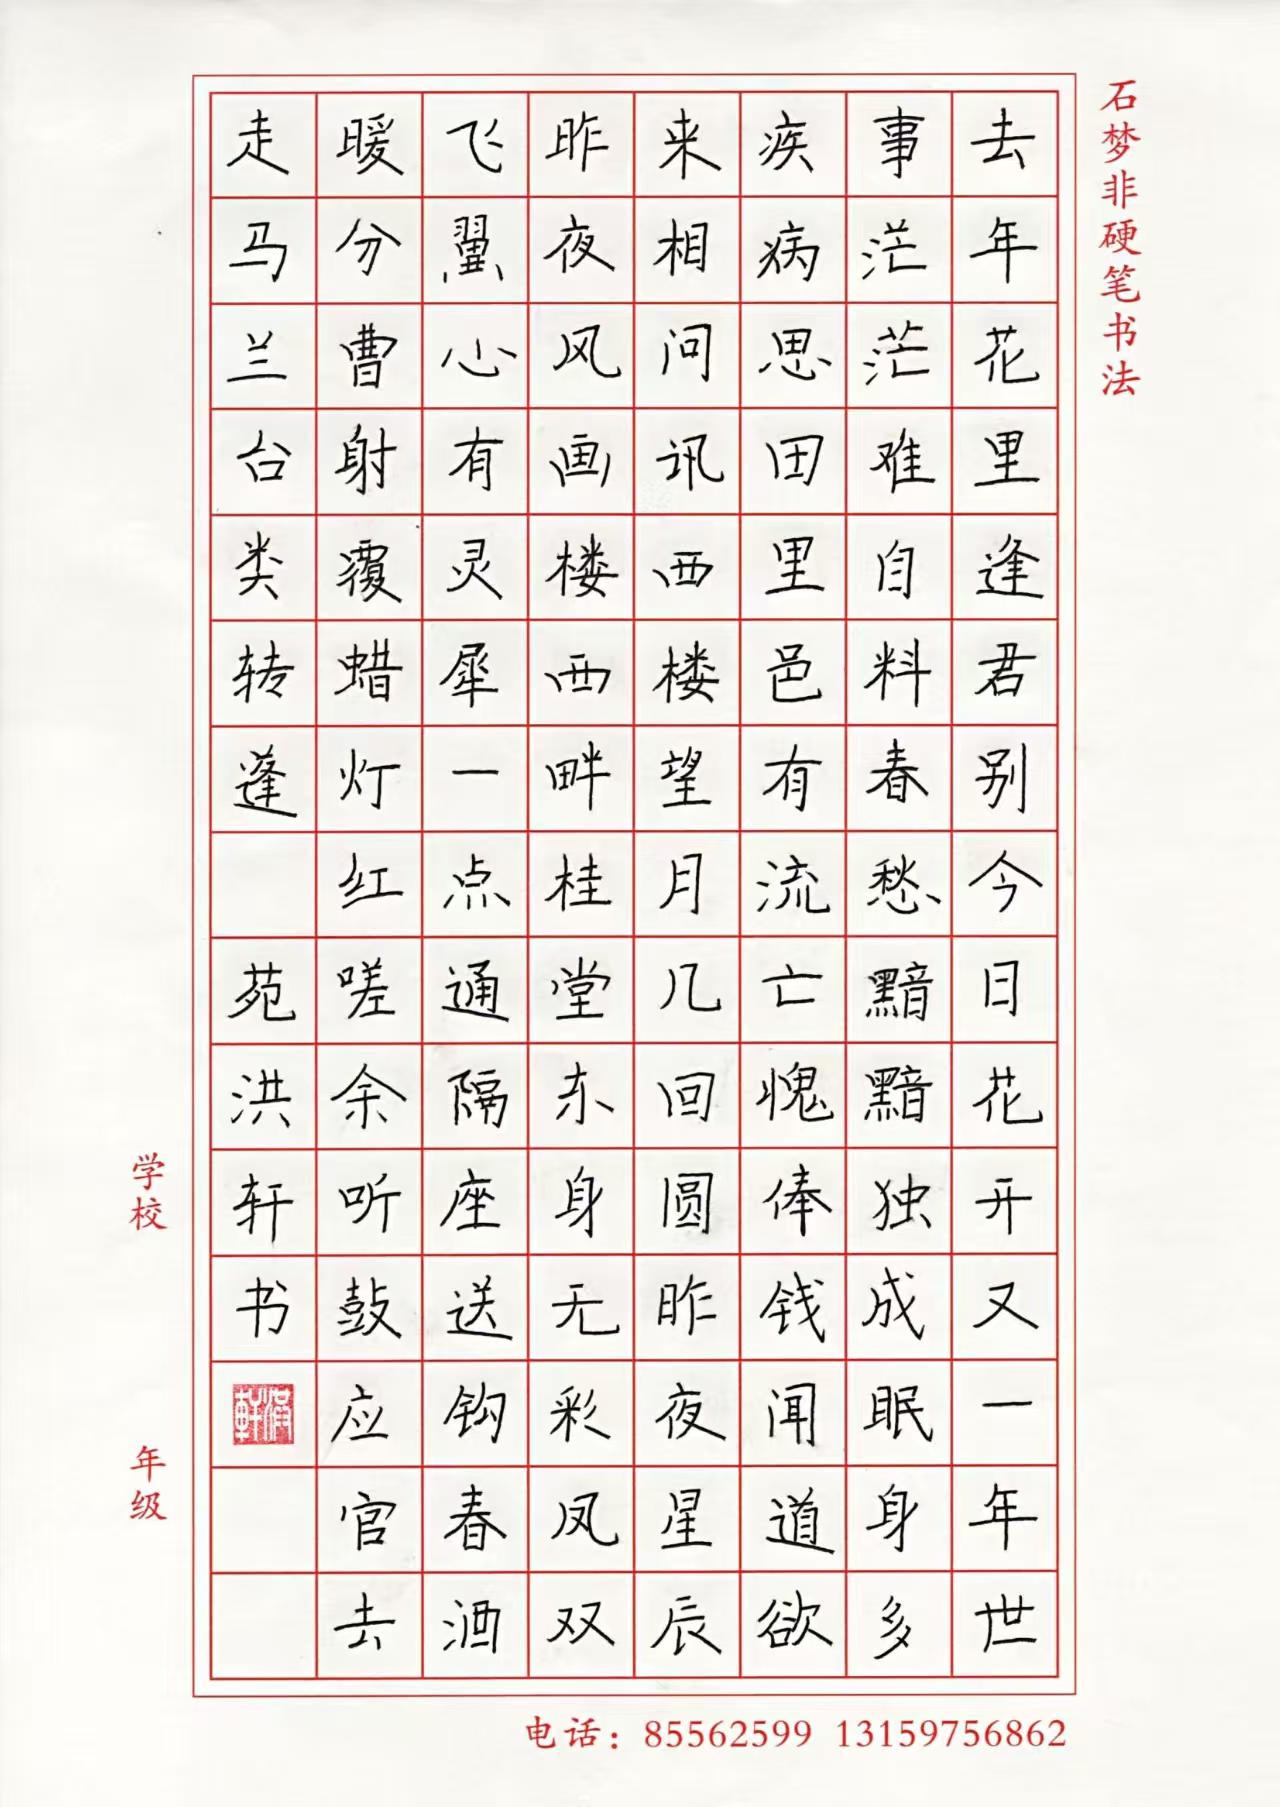 石梦非硬笔书法
去年花里逢君别今日花开又一年世
事茫茫难自料春愁黯黯独成眠身多
疾病思田里邑有流亡愧俸钱闻道欲
来相问讯西楼望月几回圆昨夜星辰
昨夜风画楼西畔桂堂东身无彩凤双
飞翼心有灵犀一点通隔座送钩春酒
暖分曹射覆蜡灯红嗟余听鼓应官去
走马兰台类转蓬 苑洪轩书
学校
年级
电话：85562599 13159756862